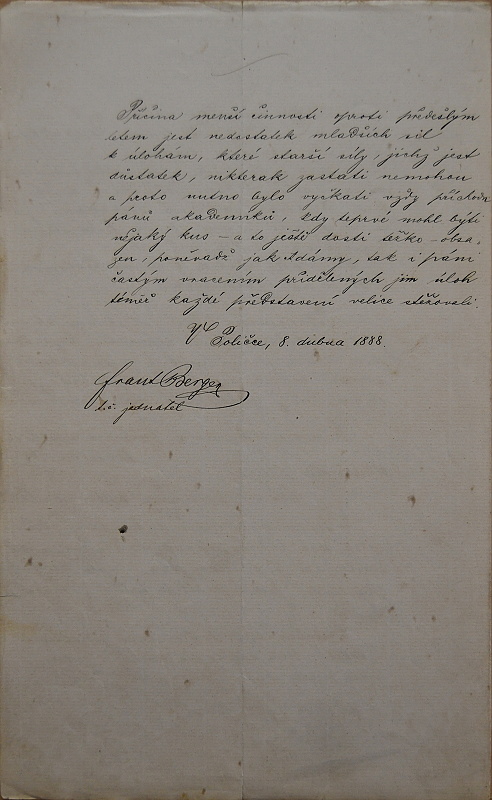 Příčina menší činnosti oproti předešlým
letem jest nedostatek mladších sil
k úlohám, které starší síly, jichž jest
důstatek, nikterak zastati nemohou
a proto nutno bylo vyčkati vždy příchodu
pánů akademiků, kdy teprvé mohl býti
nějaký kus – a to ještě dosti těžko – obsa-
zen, poněvadž jak dámy, tak i páni
častým vracením přidělených jim úloh
téměř každé představení velice stěžovali.
V Poličce, 8. dubna 1888.
Frant Berger
t.č. jednatel